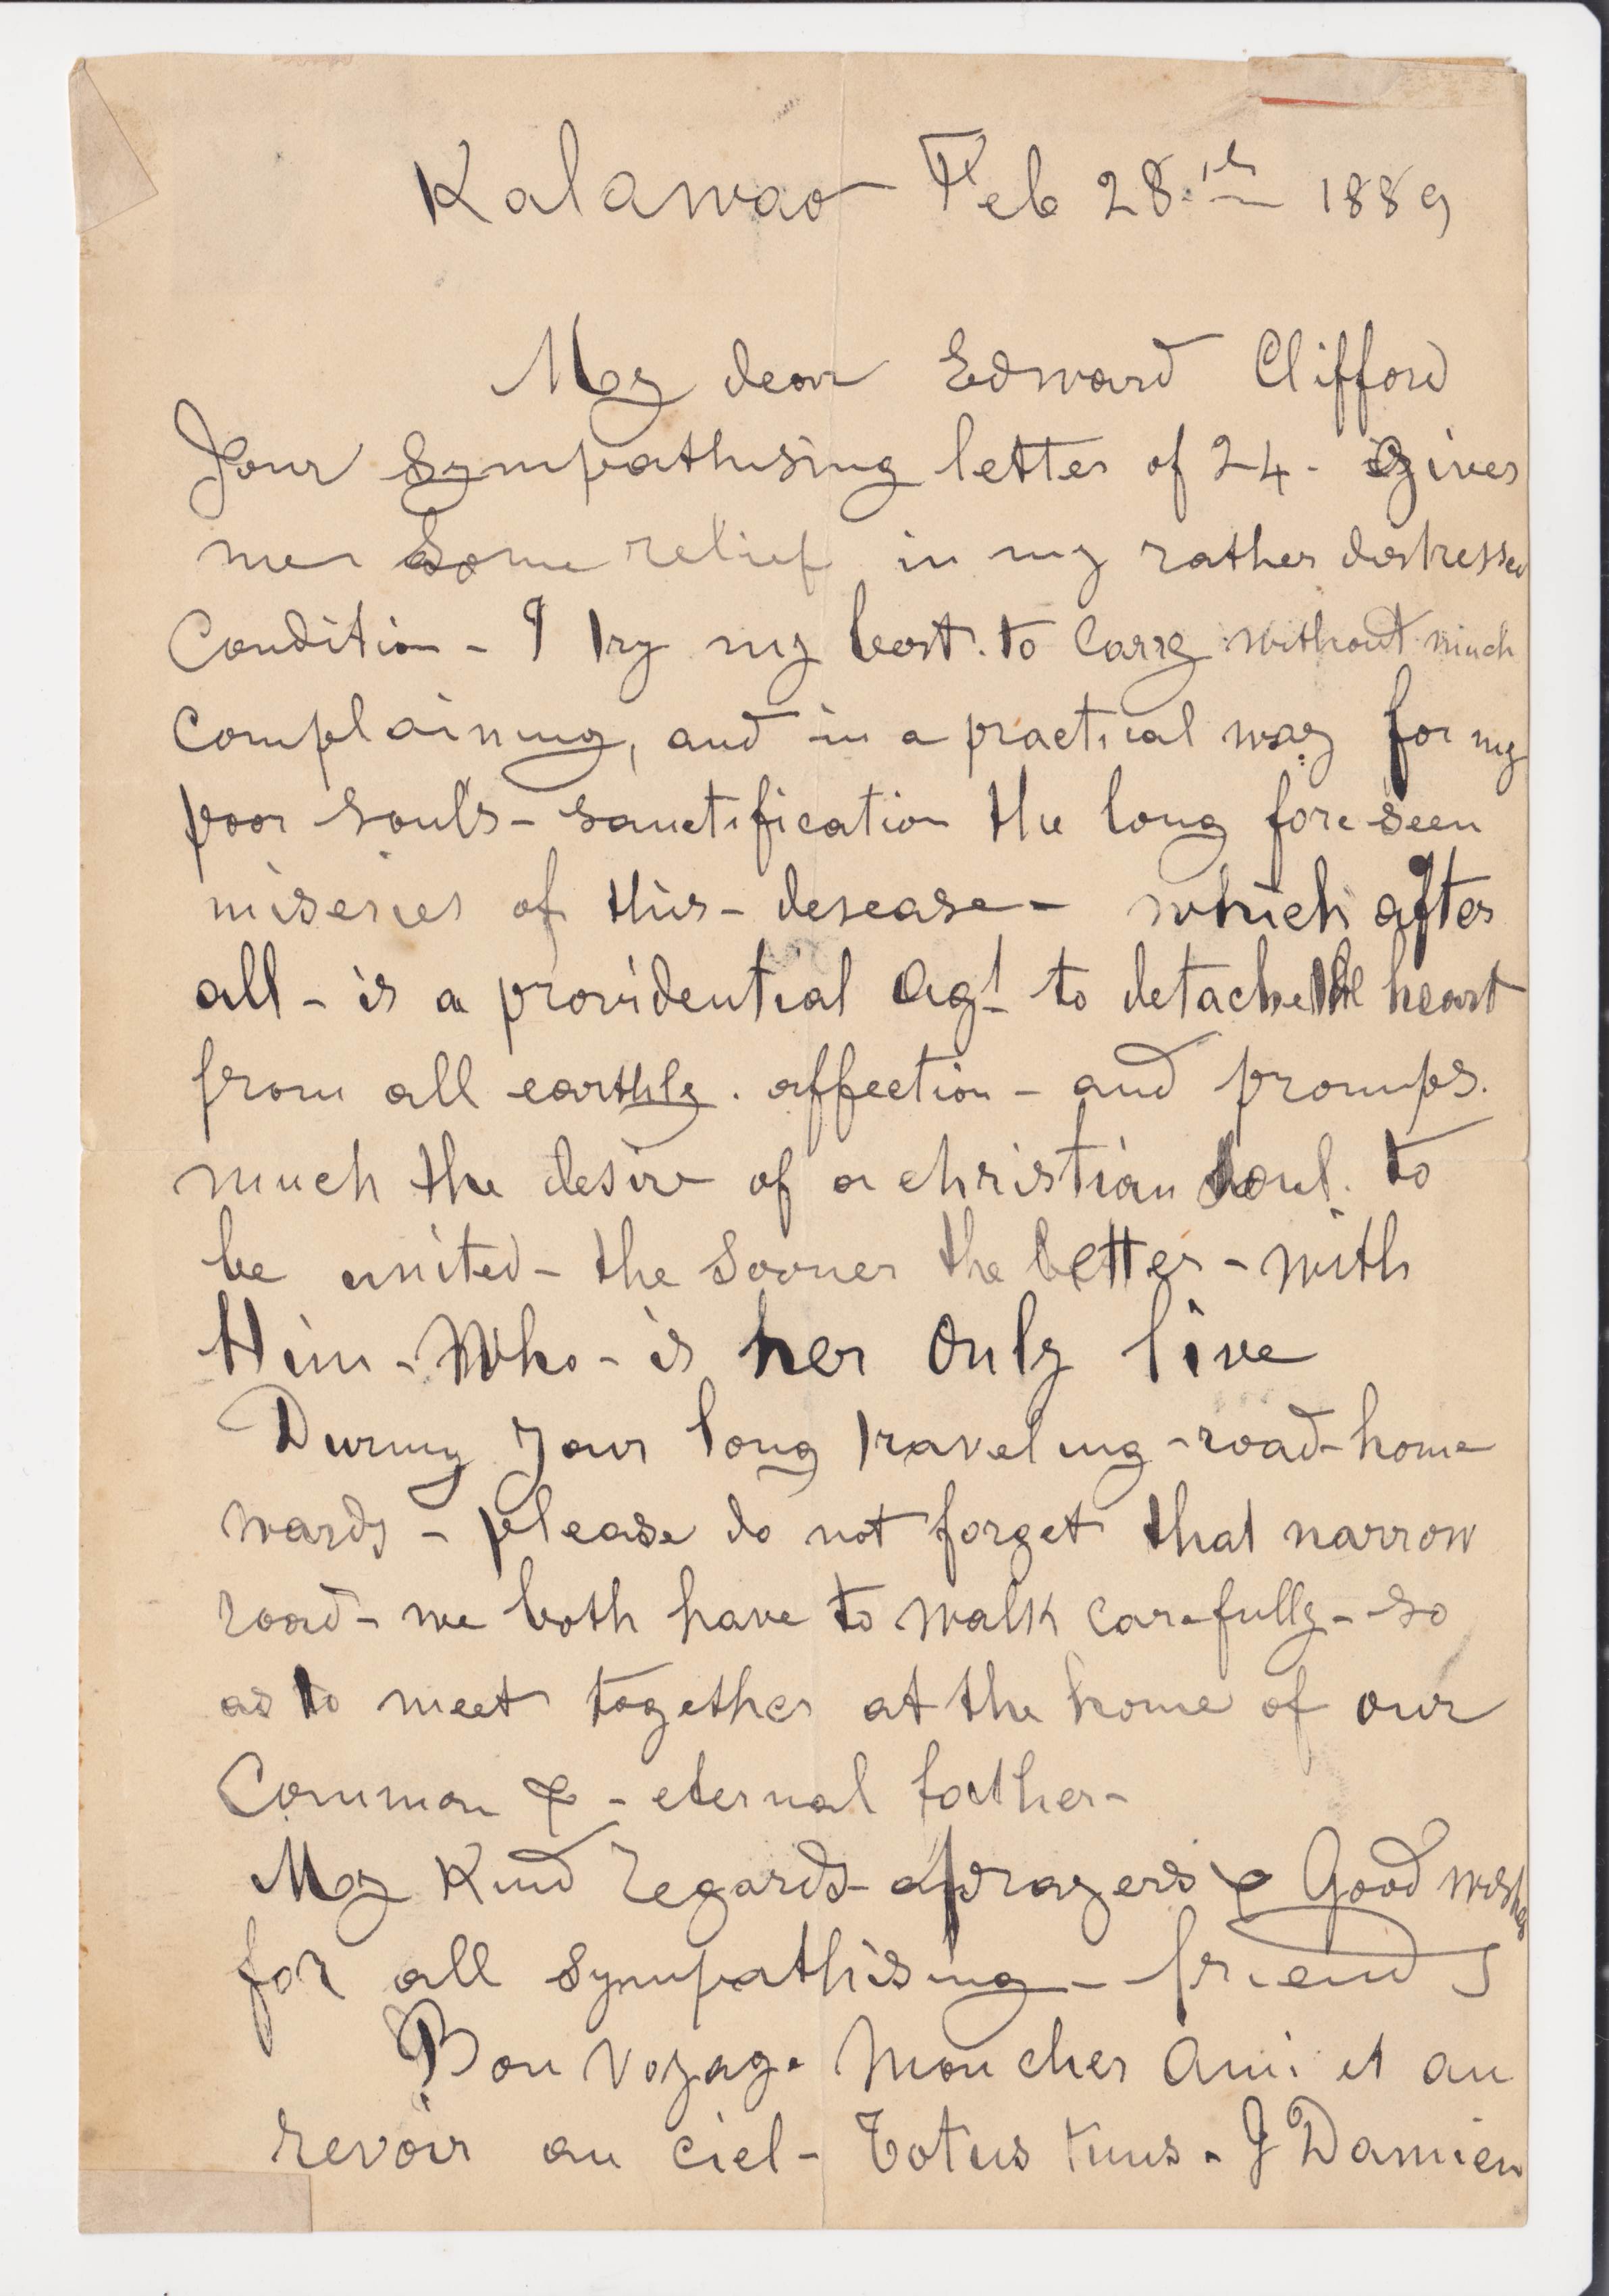 Kalawao Feb 28th 1889
My dear Edward Clifford
Your sympathising letter of 24 - gives
me some relief in my rather distressed
Condition - I try my best to carry without much
Complaining, and in a practical way for my
poor souls - sanctification the long foreseen
miseries of this - desease - which after
all - is a providential agt to detache the heart
from all earthly affection - and promps
much the desire of a christian soul to
be united - the sooner the better - with
Him - Who - is her only live
During your long traveling - road - home
wards - please do not forget that narrow
road - we both have to walk carefully - so
as to meet together at the home of our
Common & - eternal father -
My Kind regards - prayers & Good wishes
for all sympathising - friends
Bon voyage mon cher ami et au
revoir au ciel - Totus tuus - J Damien